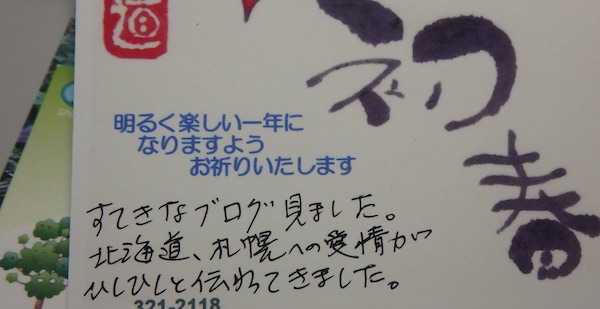 初春
明るく楽しい一年に
なりますよう
お祈りいたします
すてきなブログ見ました。
北海道、札幌への愛情が
ひしひしと伝わってきました。
321-2118